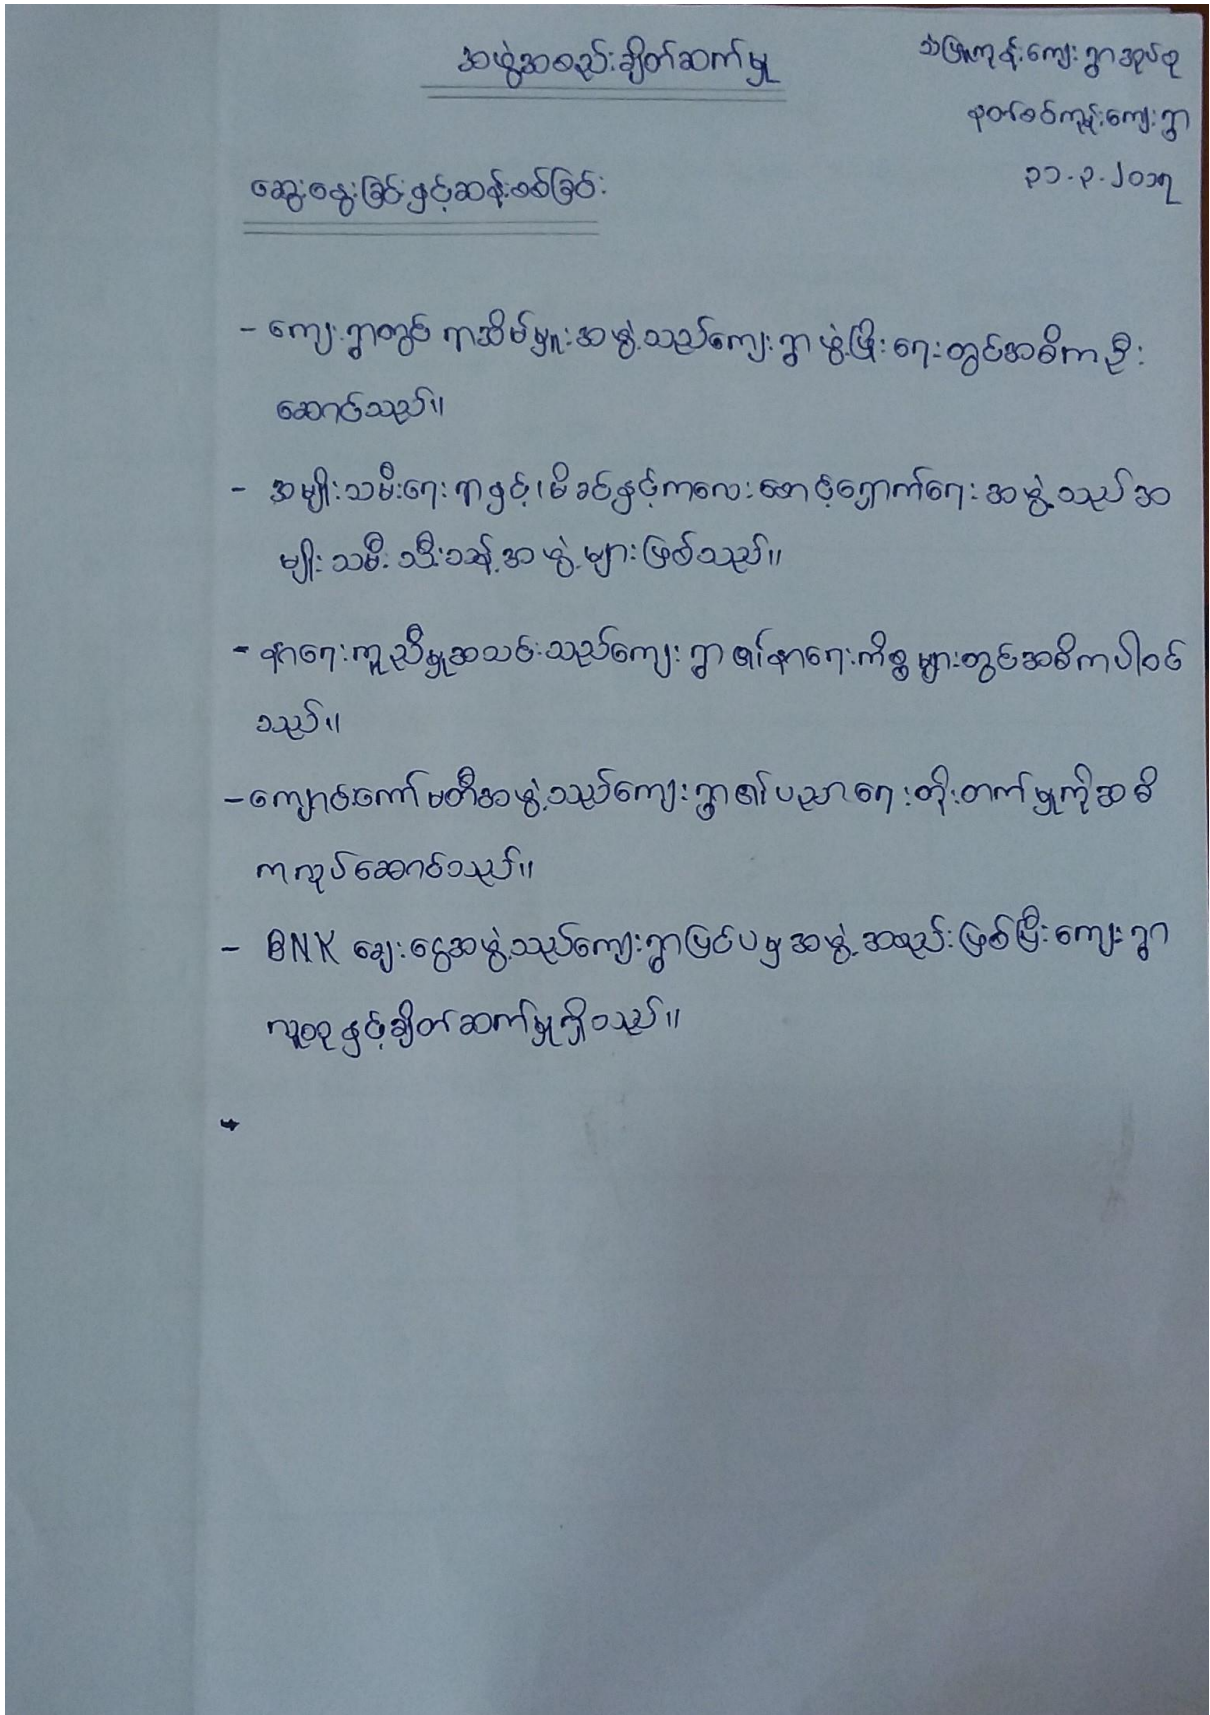 အဖွဲ့အစည်းချိတ်ဆက်မှု
သဲဖြူကုန်းကျေးရွာအုပ်စု
နတ်စင်ကုန်းကျေးရွာ
၃၁.၃.၂၀၁၇
ဆွေးနွေးခြင်းနှင့်ဆန်းစစ်ခြင်း
- ကျေးရွာတွင် ရာအိမ်မှူးအဖွဲ့သည်ကျေးရွာဖွံ့ဖြိုးရေးတွင်အဓိကဦး
ဆောင်သည်။
- အမျိုးသမီးရေးရာနှင့်၊မိခင်နှင့်ကလေးစောင့်ရှောက်ရေးအဖွဲ့သည်အ
မျိုးသမီးသီးသန့်အဖွဲ့များဖြစ်သည်။
- နာရေးကူညီမှုအသင်းသည်ကျေးရွာ၏နာရေးကိစ္စများတွင်အဓိကပါဝင်
သည်။
- ကျောင်းကော်မတီအဖွဲ့သည်ကျေးရွာ၏ပညာရေးတိုးတက်မှုကိုအဓိ
ကလုပ်ဆောင်သည်။
- BNK ချေးငွေအဖွဲ့သည်ကျေးရွာပြင်ပမှအဖွဲ့အစည်းဖြစ်ပြီးကျေးရွာ
လူထုနှင့်ချိတ်ဆက်မှုရှိသည်။